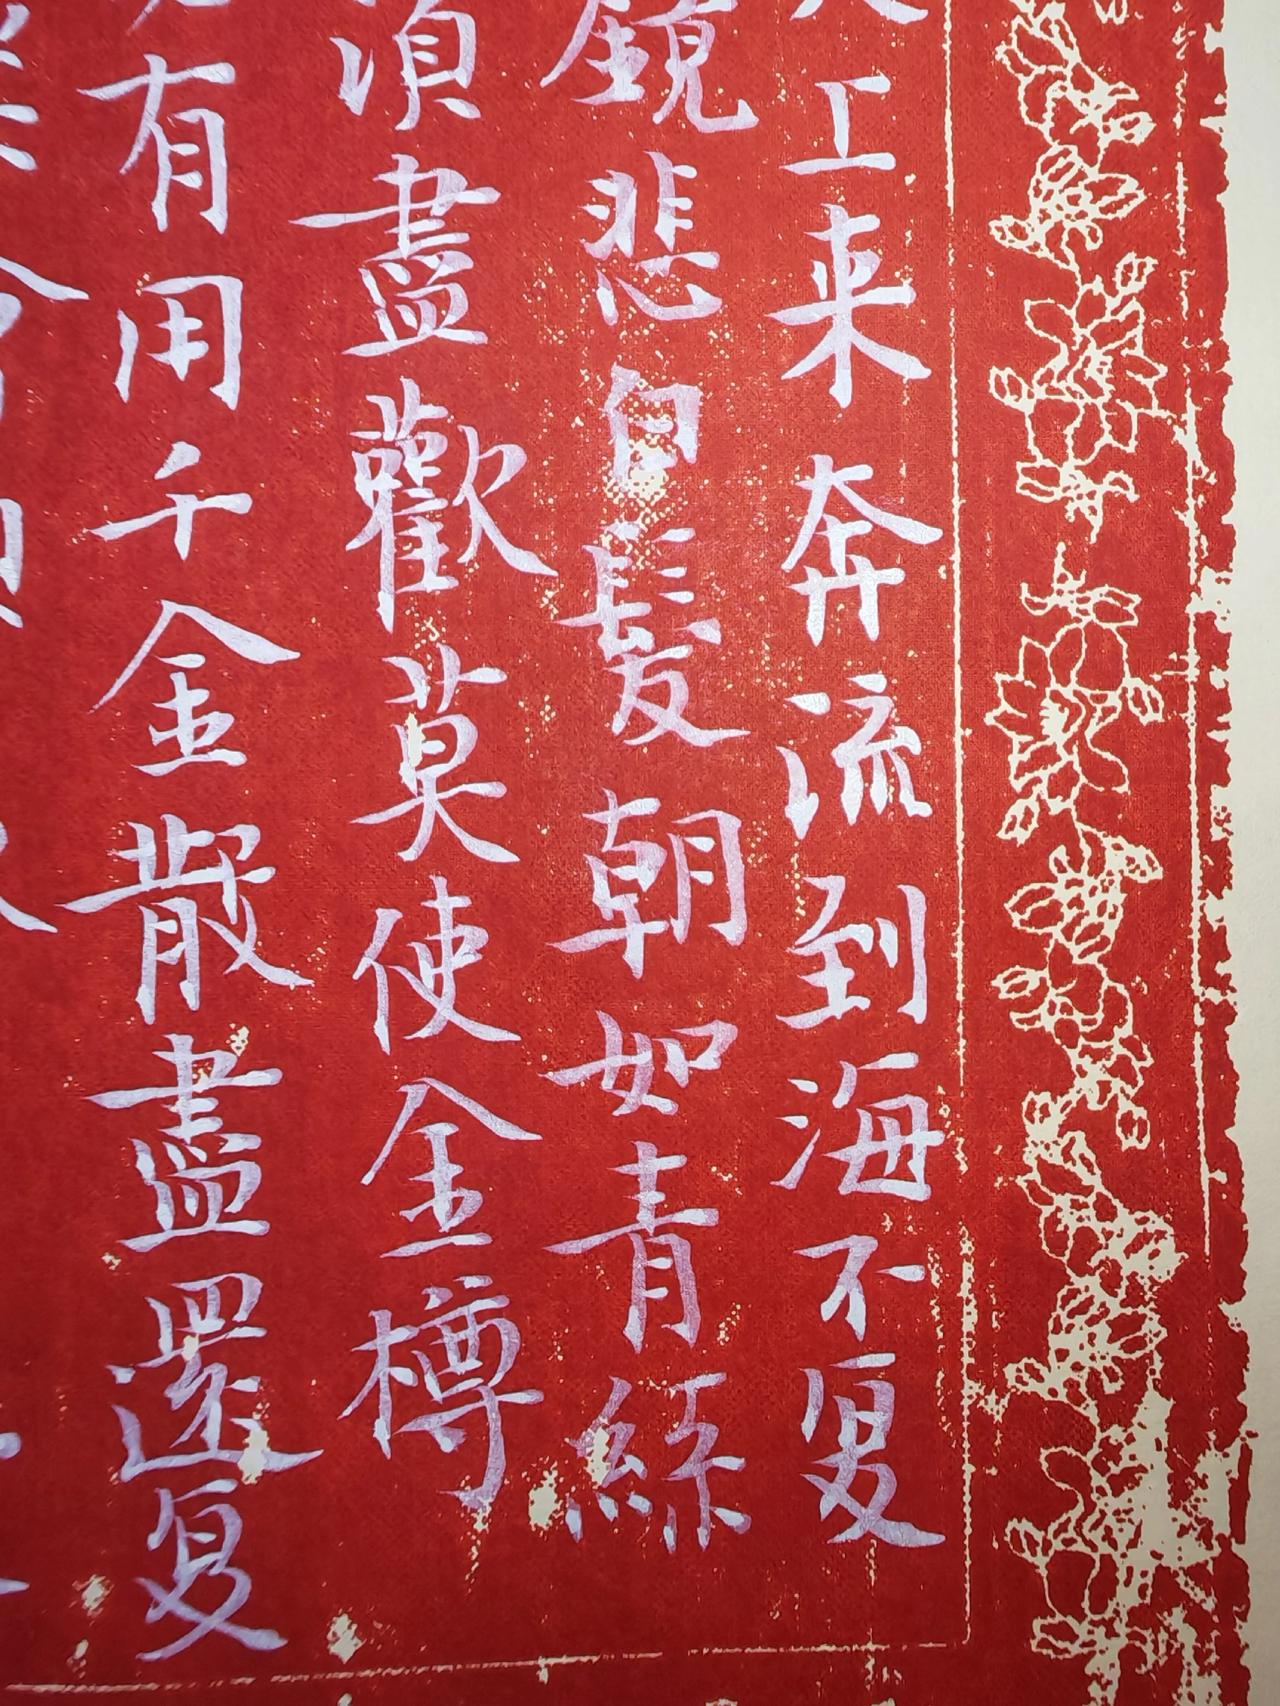 工来奔流到海不复
鏡悲白髮朝如青絲
須盡歡莫使金樽
有用千金散盡還復